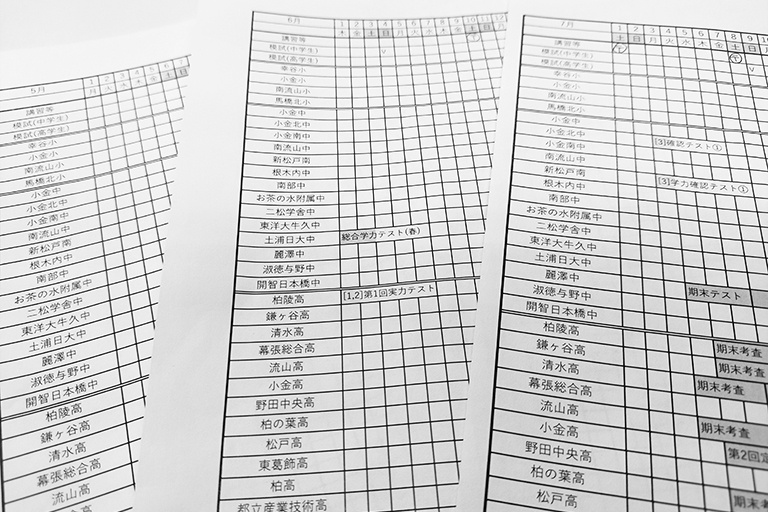 5月 1 2 3 4 5 6 7
月 火 水 木 金 土 日
講習等
模試(中学生)
模試(高学生)
幸谷小
小金小
南流山小
馬橋北小
小金中
小金北中
小金南中
南流山中
新松戸南
根木内中
南部中
お茶の水附属中
二松学舎中
東洋大牛久中
土浦日大中
麗澤中
淑徳与野中
開智日本橋中
柏陵高
鎌ヶ谷高
清水高
幕張総合高
流山高
6月 1 2 3 4 5 6 7 8 9 10 11 12
木 金 土 日 月 火 水 木 金 土 日
講習等
模試(中学生)
模試(高学生)
幸谷小
小金小
南流山小
馬橋北小
小金中
小金北中
小金南中
南流山中
新松戸南
根木内中
南部中
お茶の水附属中
二松学舎中
東洋大牛久中
土浦日大中 総合学力テスト(春)
麗澤中
淑徳与野中
開智日本橋中
柏陵高 [1,2]第1回実力テスト
鎌ヶ谷高
清水高
幕張総合高
流山高
小金高
野田中央高
柏の葉高
松戸高
東葛飾高
柏高
都立産業技術高
7月 1 2 3 4 5 6 7 8 9
土 日 月 火 水 木 金 土 日 月
講習等
模試(中学生)
模試(高学生)
幸谷小
小金小
南流山小
馬橋北小
小金中
小金北中
小金南中 [3]確認テスト①
南流山中
新松戸南
根木内中 [3]学力確認テスト①
南部中
お茶の水附属中
二松学舎中
東洋大牛久中
土浦日大中
麗澤中
淑徳与野中 期末テスト
開智日本橋中
柏陵高
鎌ヶ谷高 期末考査
清水高 期末考査
幕張総合高 期末考査
流山高
小金高 期末考査
野田中央高 第2回定
柏の葉高
松戸高 期末考